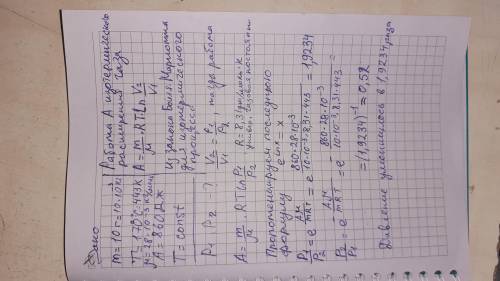 Дано
m=10г=10·10⁻³кг
T=170°C=443K
μ=28·10⁻³кг/моль
A=860Дж
T=const
P₁ P₂ - ?
Работа A изотермического
расширения газа
A = m/μ · RT ln V₂/V₁
Из закона Бойля Мариотта
для изотермического
процесса
V₂/V₁ = P₁/P₂, тогда работа
A = m/μ · RT ln P₁/P₂ R=8,31 Дж/моль·K
универ. газовая постоянная
Пропотенцируем последнюю
формулу e^ln x = x
P₁/P₂ = e^(Aμ/mRT) = e^(860·28·10⁻³/10·10⁻³·8,31·443) = 1,9234
P₂/P₁ = e^(-Aμ/mRT) = e^(-860·28·10⁻³/10·10⁻³·8,31·443) =
= (1,9234)⁻¹ = 0,52
Давление уменьшилось в 1,9234 раза